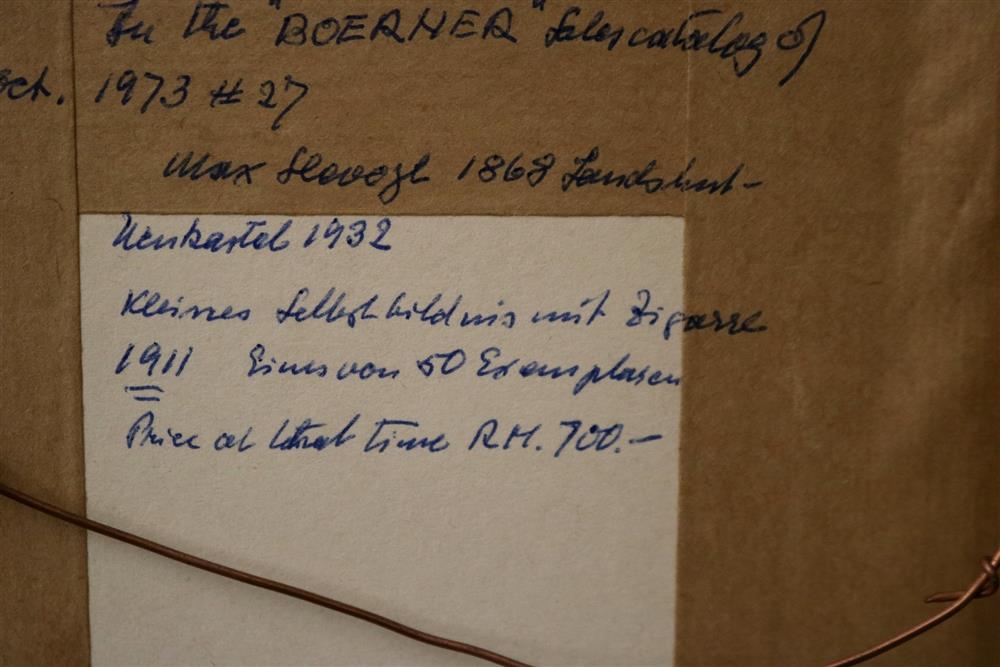 In the "BOERNER" Salescatalog of
oct. 1973 # 27
Max Slevogt 1868 Landshut -
Neukastel 1932
Kleines Selbstbildnis mit Zigarre
1911 Eines von 50 Exemplaren
Price at that time RM. 700.-